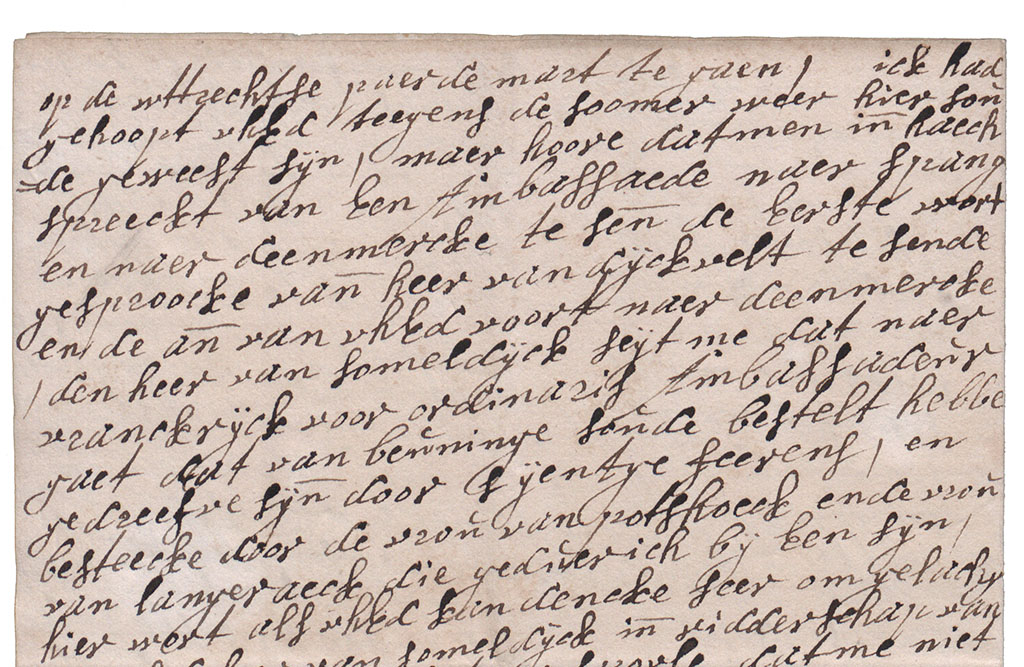 op de uttrechtse paerde mart te gaen / ick had
gehoopt uhEd teegens de soomer weer hier soú
=de geweest sÿn / maer hoore datmen in haech
spreeckt van een Ambassaede naer spang
en naer deenmercke te sen de eerste wort
gesproocke van heer van dÿckvelt te sende
en de an van uhEd voort naer deenmercke
/ den heer van someldÿck seÿt me dat naer
vranckrÿck voor ordinaris Ambassadeúr
gaet dat van beúninge soúde bestelt hebbe
gedreefve sÿn door Sÿentge seerens / en
besteecke door de vroú van potshoeck ende vroú
van langeraeck die gedúerich bÿ een sÿn /
hier wort als uhEd kan dencke seer om gelachge
van someldÿck in ridderschap van
datme niet